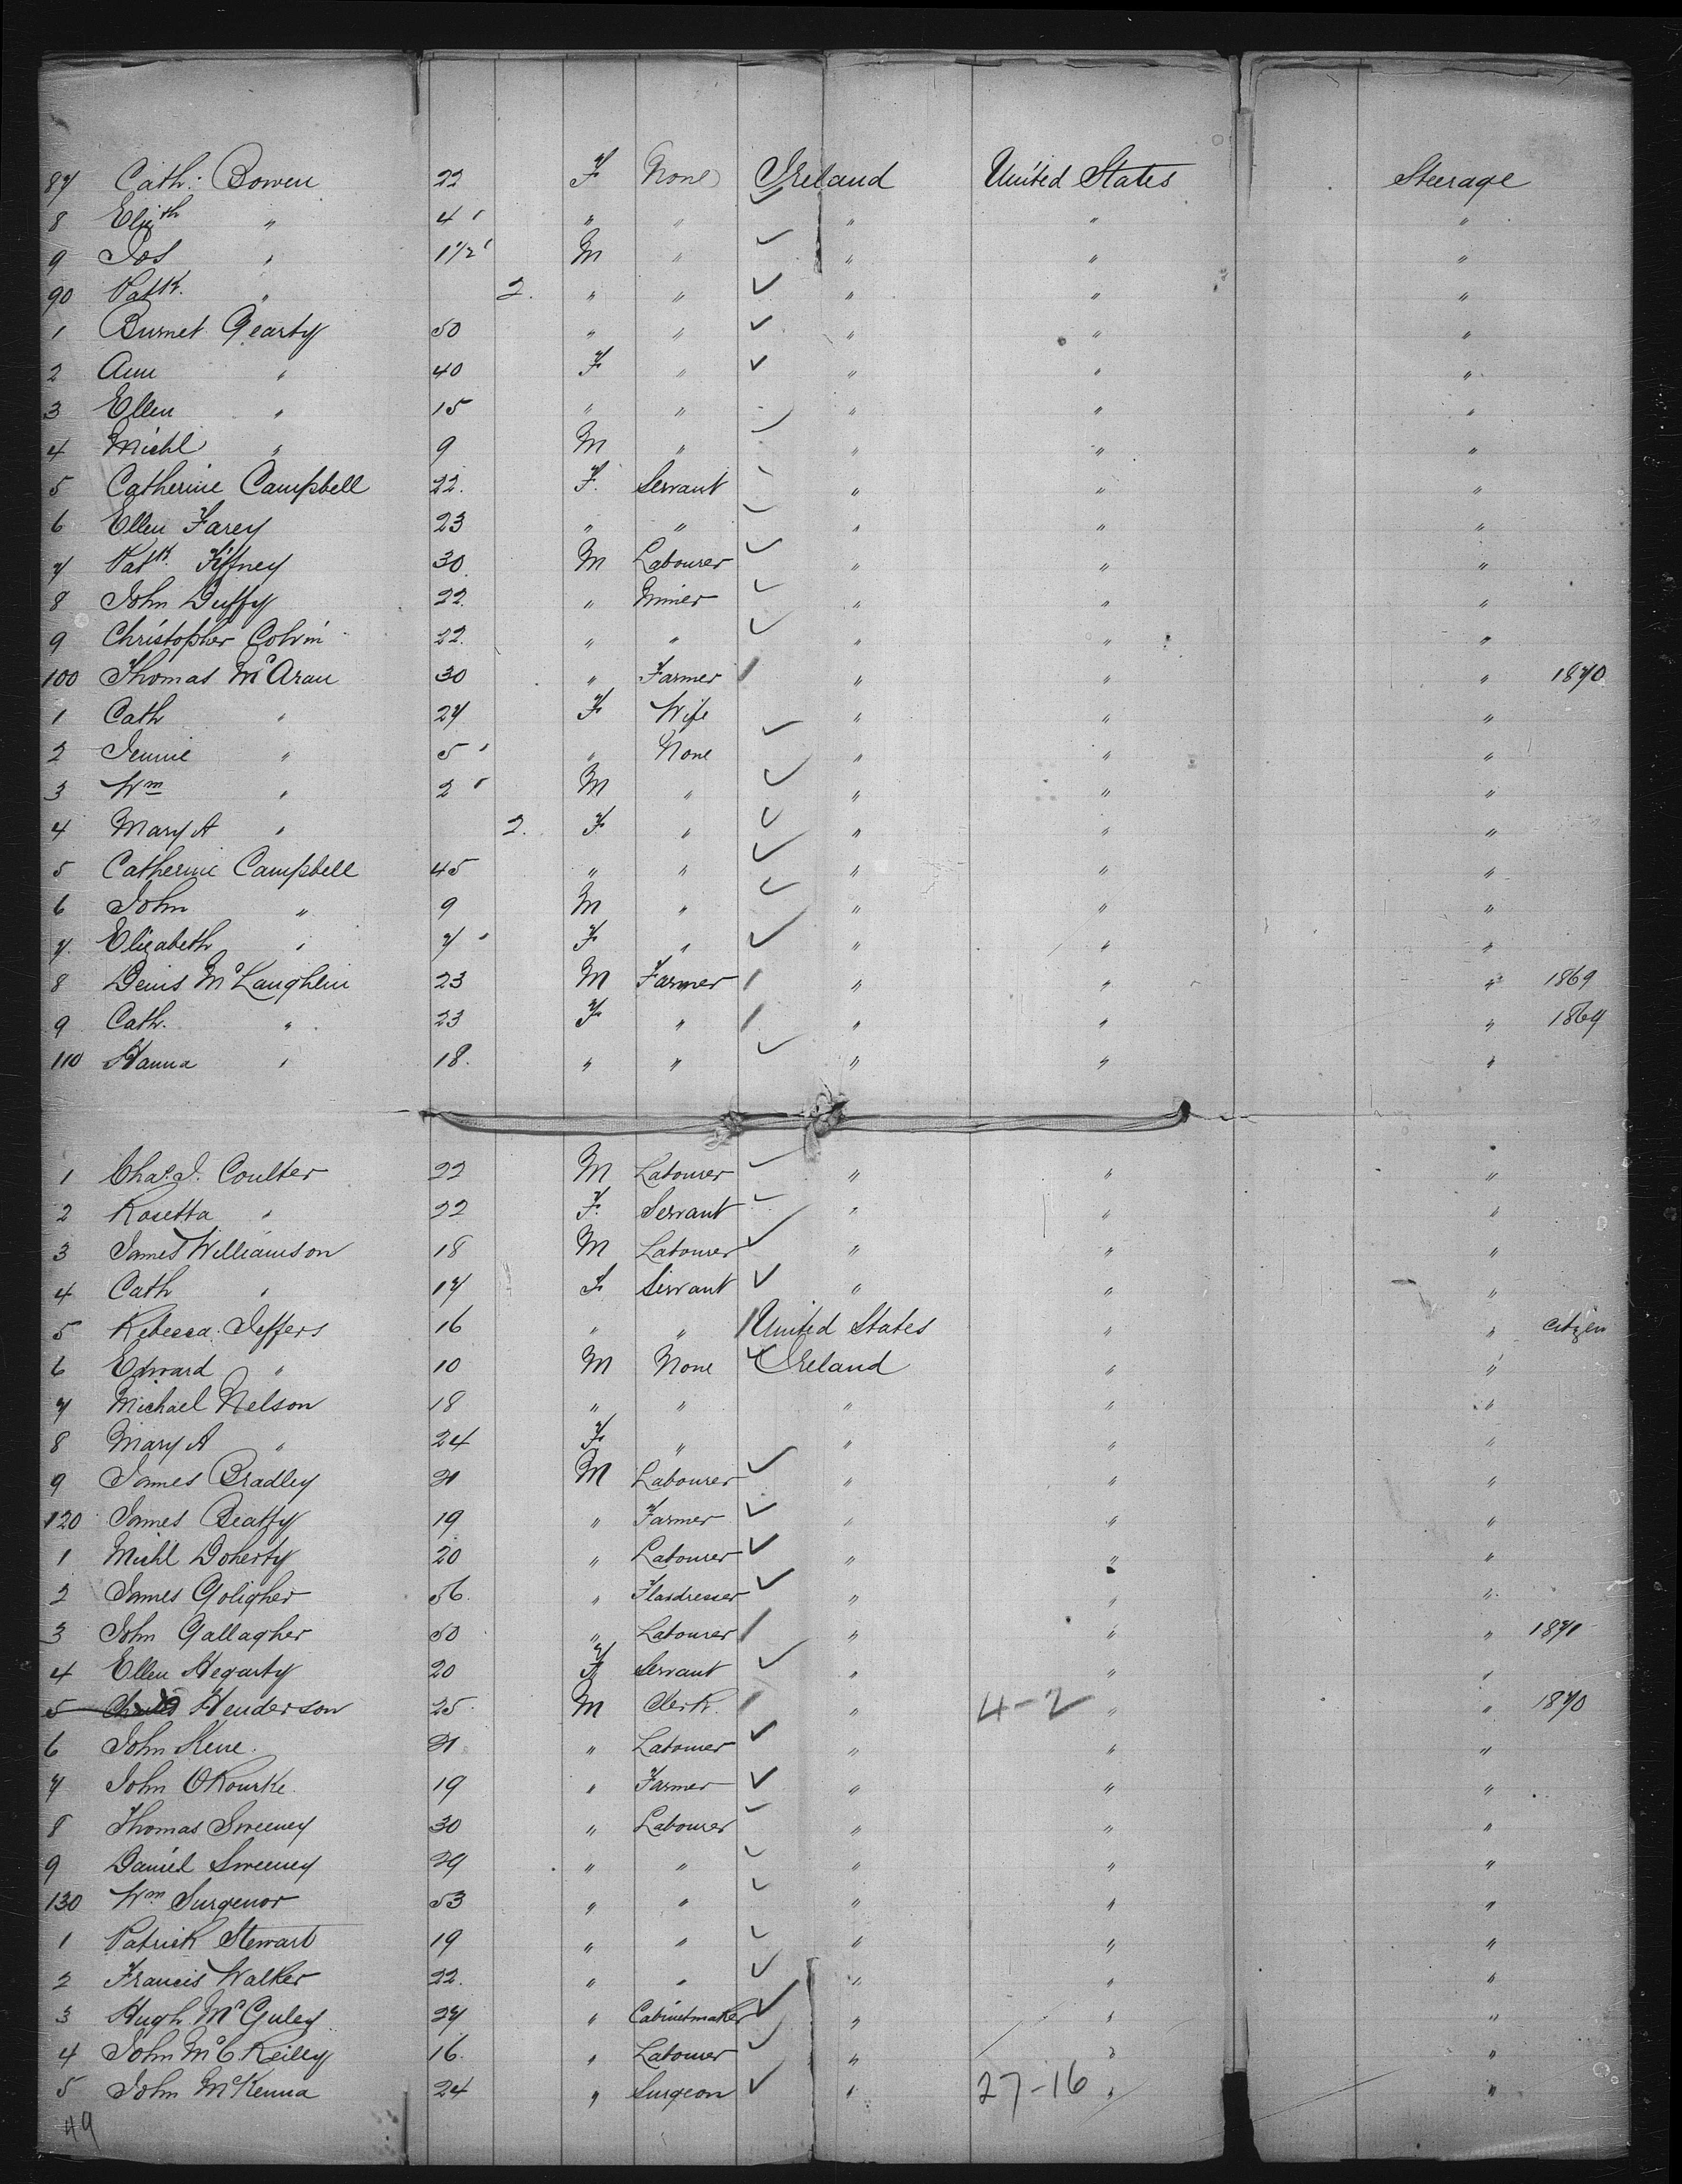 87 Cath: Bowen 22 F None Ireland United States Steerage
8 Elizth " 4 " " " " "
9 Jos " 1 1/2 M " " " "
90 Patk. " 2. " " " " "
1 Burnet Gearty 50 " " " " "
2 Ann " 40 F " " " "
3 Ellen " 15 " " " " "
4 Michl " 9 M " " " "
5 Catherine Campbell 22. F. Servant " " "
6 Ellen Farey 23 " " " " "
7 Patk. Tiffney 30 M Labourer " " "
8 John Duffy 22. " Miner " " "
9 Christopher Colvin 22. " " " " "
100 Thomas McAran 30 " Farmer " " " 1870
1 Cath " 27 F Wife " " "
2 Jennie " 5 " None " " "
3 Wm " 2 M " " " "
4 Mary A " 2. F. " " " "
5 Catherine Campbell 45 " " " " "
6 John " 9 M " " " "
7. Elizabeth " 7 F " " " "
8 Denis McLaughlin 23 M Farmer " " " 1869
9 Cath. " 23 F " " " " 1869
110 Hanna " 18. " " " " "
1 Chas. J. Coulter 22 M Labourer " " "
2 Rosetta " 22 F. Servant " " "
3 James Williamson 18 M Labourer " " "
4 Cath " 17 F Servant " " "
5 Rebecca Jeffers 16 " " United States " " citizen
6 Edward " 10 M None Ireland " "
7 Michael Nelson 18 " " " " "
8 Mary A " 24 F " " " "
9 James Bradley 21 M Labourer " " "
120 James Beatty 19 " Farmer " " "
1 Michl Doherty 20 " Labourer " " "
2 James Goligher 56. " Flaxdresser " " "
3 John Gallagher 50 " Labourer " " " 1871
4 Ellen Hegarty 20 F Servant " " "
5 Henderson 25. M Clerk. " 4-2 " " 1870
6 John Kene. 21 " Labourer " " "
7 John O'Rourke. 19 " Farmer " " "
8 Thomas Sweeney 30 " Labourer " " "
9 Daniel Sweeney 29 " " " " "
130 Wm Surgenor 53 " " " " "
1 Patrick Stewart 19 " " " " "
2 Francis Walker 22. " " " " "
3 Hugh McGuley 27 " Cabinetmaker " " "
4 John McC Reilly 16. " Labourer " " "
5 John McKenna 24 " Surgeon " 27-16 " "
49